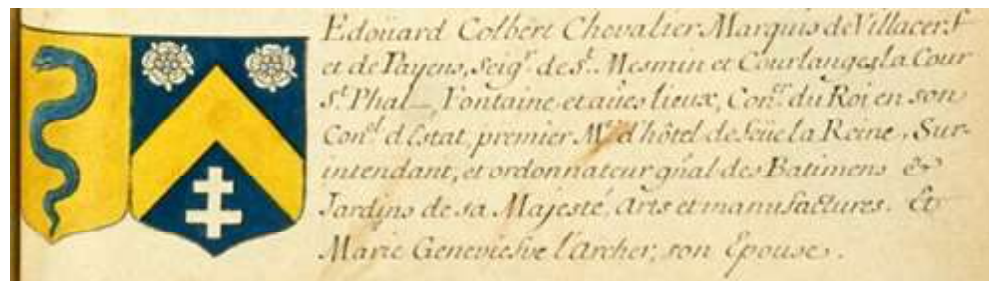 Edoüard Colbert Chevalier Marquis de Villacerf
et de Payens, Seigr. de St. Mesmin et Courlanges, la Cour
St. Phal, Fontaine et aues lieux, Conr. du Roi en son
Conel d'Estat, premier Me. d'hôtel de feüe la Reine, Sur-
intendant, et ordonnateur gnal des Batimens &
Jardins de sa Majesté, arts et manufactures. Et
Marie Geneviesve l'archer, son Epouse.